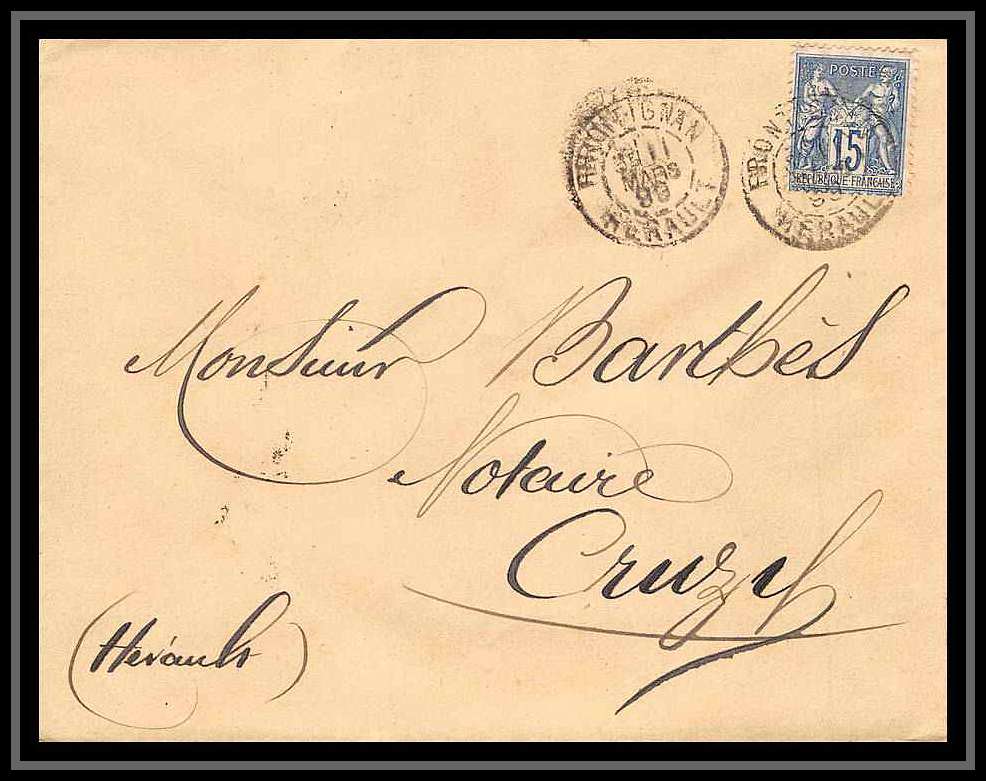 FRONTIGNAN
11
MARS
HERAULT
POSTE
15
REPUBLIQUE FRANÇAISE
FRONT
HERAULT
Monsieur Barthès
Notaire
Cruzy
(Hérault)